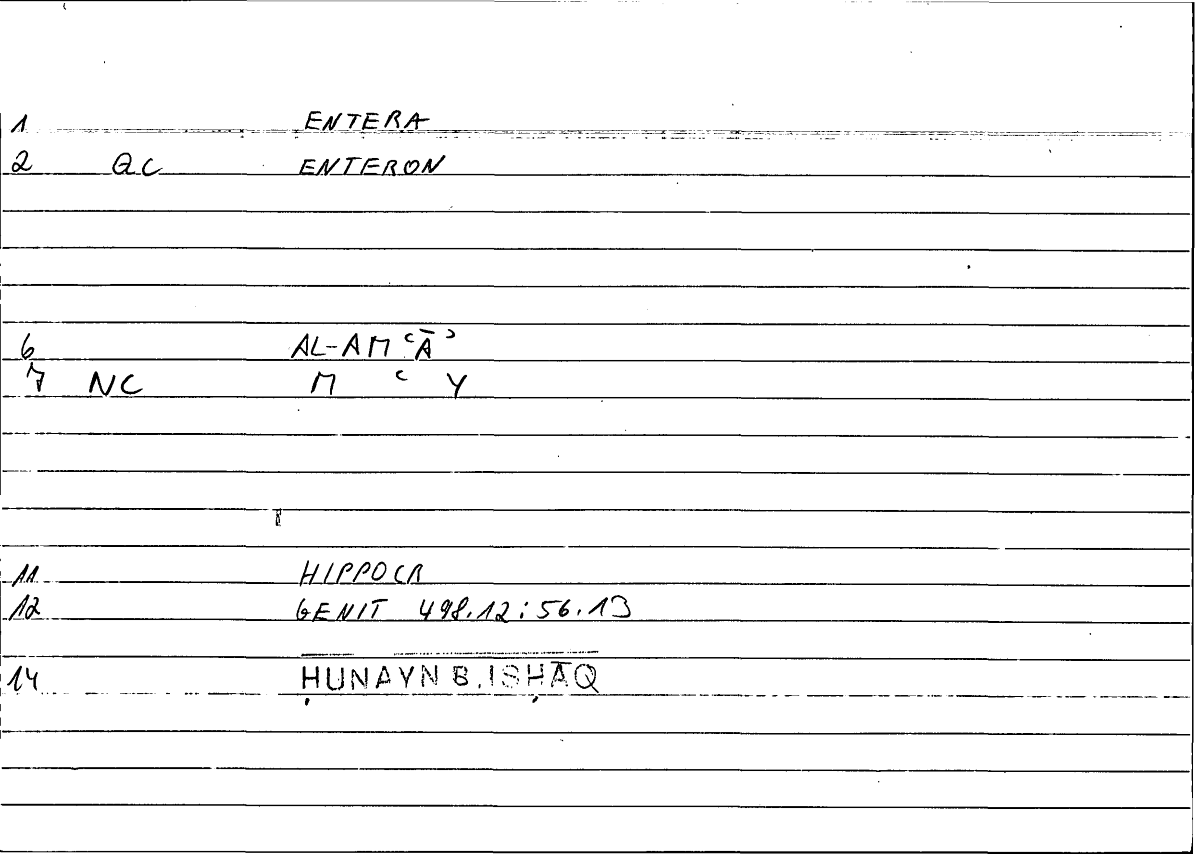 1 ENTERA
2 QC ENTERON
6 AL-AMʿĀʾ
7 NC M ʿ Y
11 HIPPOCR
12 GENIT 498.12:56.13
14 ḤUNAYN B. ISḤĀQ